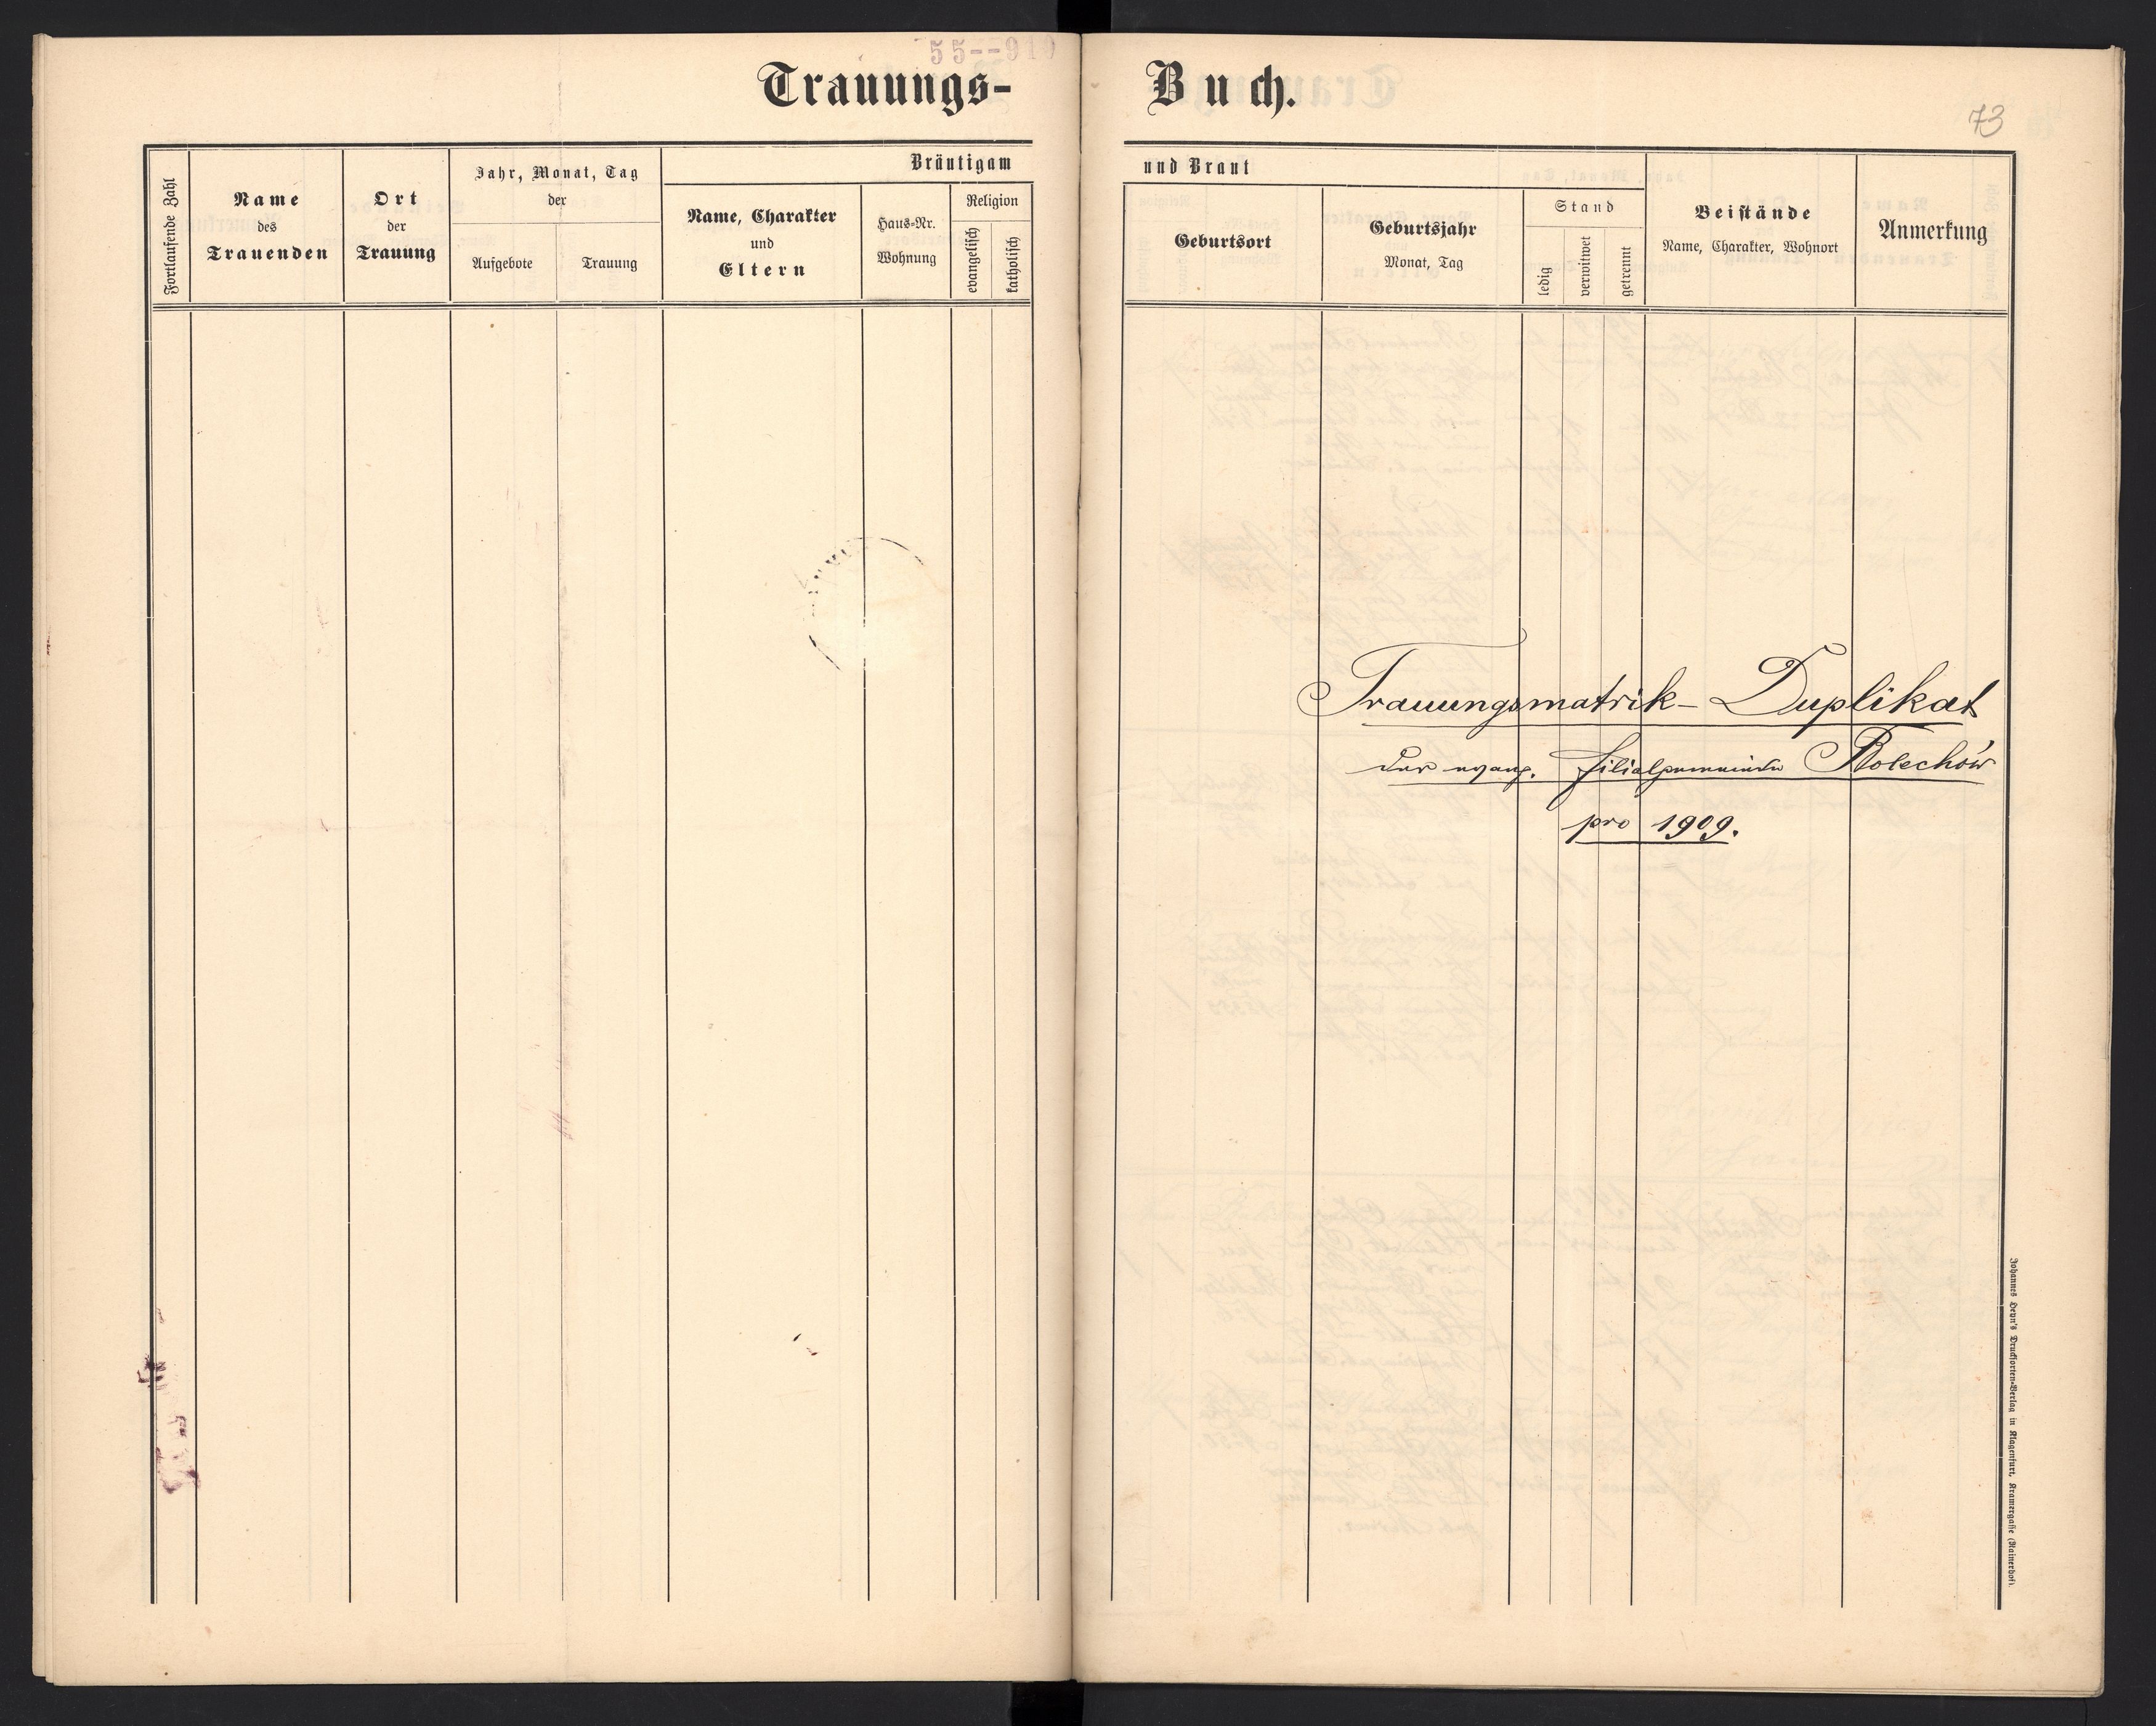 55--910
Trauungs-Buch.
73
Fortlaufende Zahl
Name
des
Trauenden
Ort
der
Trauung
Jahr, Monat, Tag
der
Aufgebote
Trauung
Bräutigam und Braut
Name, Charakter
und
Eltern
Haus-Nr.
Wohnung
Religion
evangelisch
katholisch
Geburtsort
Geburtsjahr
Monat, Tag
Stand
ledig
verwitwet
getrennt
Beistände
Name, Charakter, Wohnort
Anmerkung
Trauungsmatrik-Duplikat
der evang. Filialgemeinde Bolechów
pro 1909.
Johannes Heyn's Drucksorten-Verlag in Klagenfurt, Kramergasse (Rainerhof).